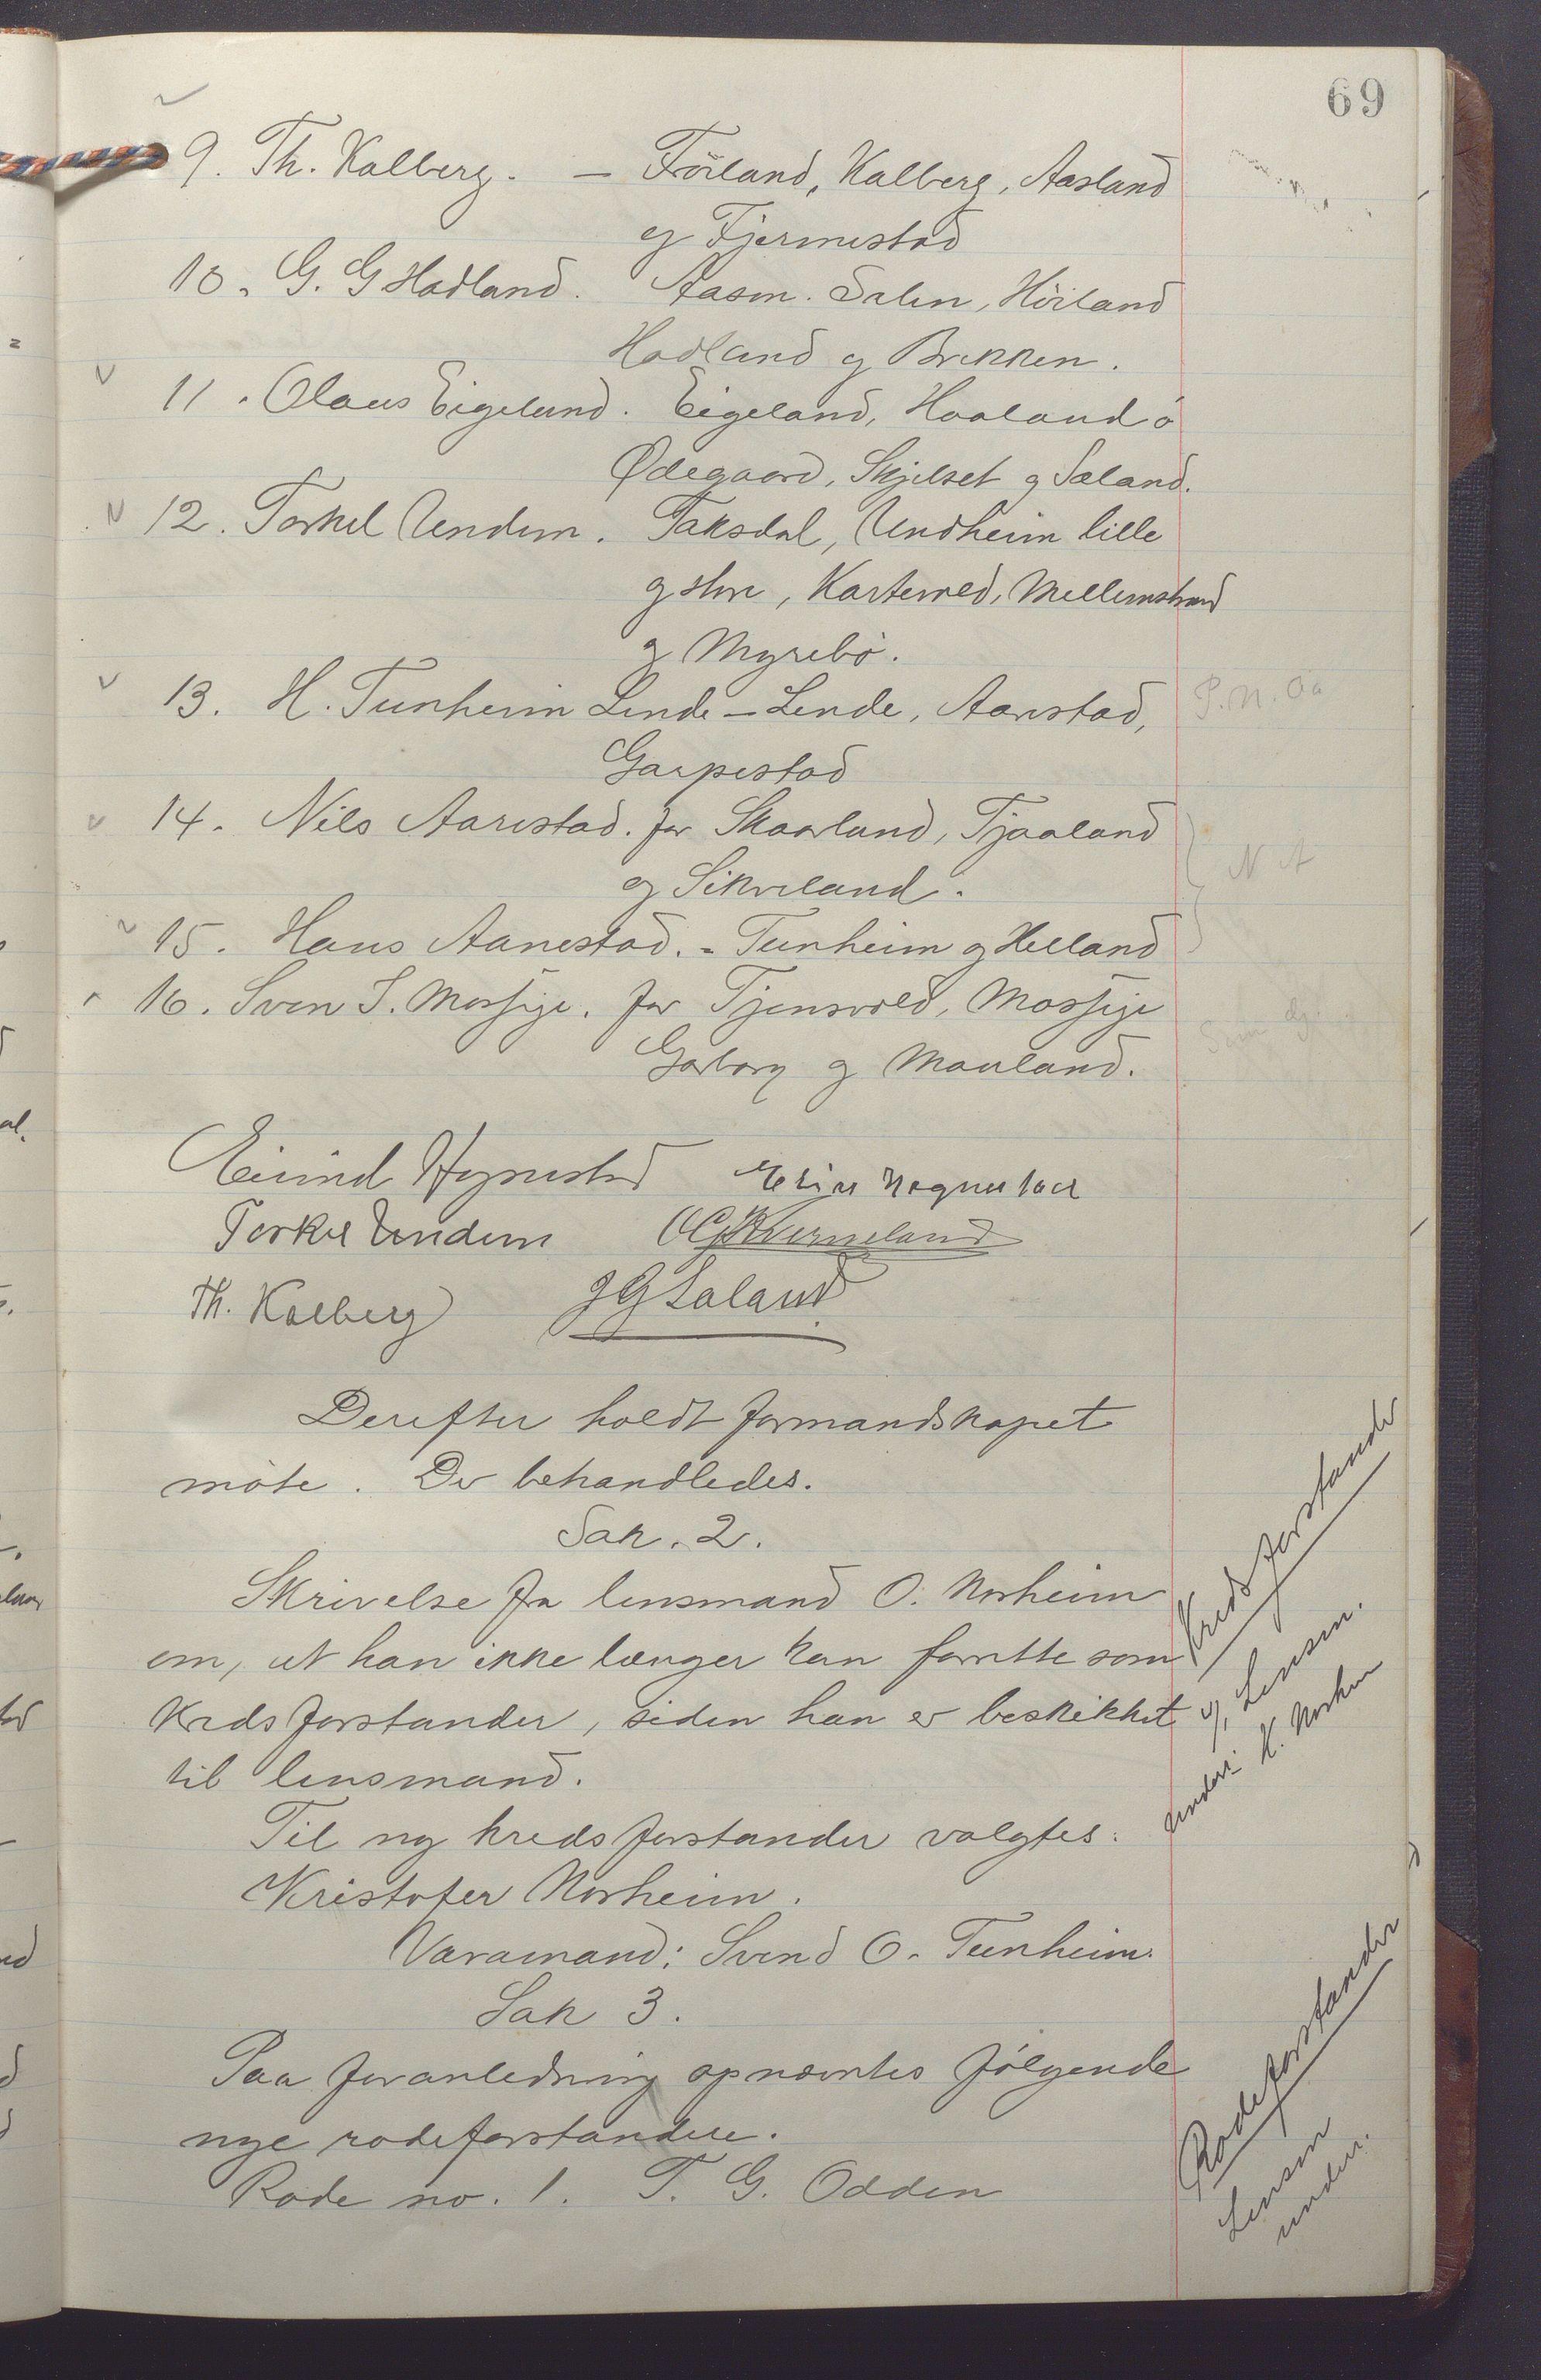 69
9. Th. Kalberg. — Förland, Kalberg, Aasland
og Fjermestad
10. G. G Hadland. Aasen. Salen, Höiland
Hadland og Brekken.
11. Olaus Eigeland. Eigeland, Haaland ö
Ødegaard, Skjelset og Sæland.
12. Torkel Undem. Taksdal, Undheim lille
og store, Kartevold, Mellemstrand
og Myrebö.
13. H. Tunheim Lende – Lende, Aanestad,
Garpestad
P. N. Aa
14. Nils Aarestad. for Skaarland, Tjaaland
og Sikveland.
N A
15. Hans Aanestad. - Tunheim og Helland
16. Sven S. Mossige. for Tjensvold, Mossige
Garborg og Mauland.
Eivind Hognestad Elias Hognestad
Torkel Undem OG Kverneland
Th. Kalberg JG Saland
Derefter holdt formandskapet
möte. Der behandledes.
Sak. 2.
Skrivelse fra lensmand O. Norheim
om, at han ikke længer kan forrette som
kredsforstander, siden han er beskikket
til lensmand.
Kredsforstander
Lensm.
underr. K. Norheim
Til ny kredsforstander valgtes:
Kristofer Norheim.
Varamand: Svend O. Tunheim.
Sak 3.
Paa foranledning opnævntes fölgende
nye rodeforstandere.
Rode no. 1. T. G. Odden
Rodeforstander
Lensm
underr.